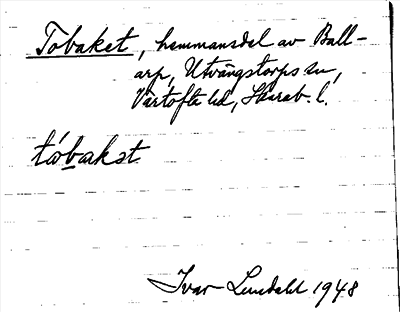 Tobaket, hemmansdel av Ball-
arp, Utvängstorps sn,
Vartofta hd, Skarab. l.
tóbakət
Ivar Lundahl 1948